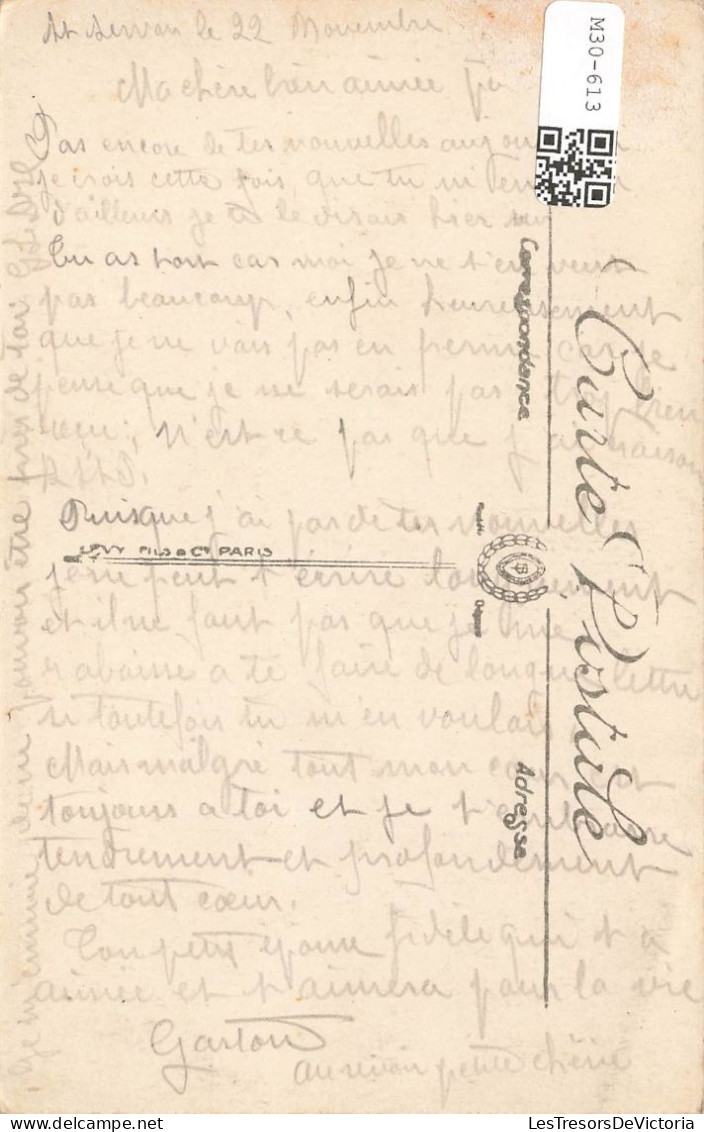 St Servan le 22 Novembre
Ma chère bien aimée
Pas encore de tes nouvelles
je crois cette fois, que tu m'en
d'ailleurs je te le disais hier
tu as tort car moi je ne t'en veux
pas beaucoup, enfin heureusement
que je ne vais pas en perme car je
pense que je ne serais pas trop bien
reçu; N'est ce pas que j'ai raison
Puisque j'ai pas de tes nouvelles
je ne peut t'écrire longuement
et il ne faut pas que je me
rabaisse a te faire de longue lettre
si toutefois tu m'en voulais
Mais malgré tout mon cœur est
toujours a toi et je t'embrasse
tendrement et profondement
de tout cœur.
Ton petit époux fidèle qui t'a
aimée et t'aimera pour la vie
Gaston
au revoir petite chérie
Je m'ennuie de ne pouvoir être près de toi
Carte Postale
Correspondance
Adresse
LEVY FILS & Cie PARIS
Déposé
M30-613
LesTresorsDeVictoria.com